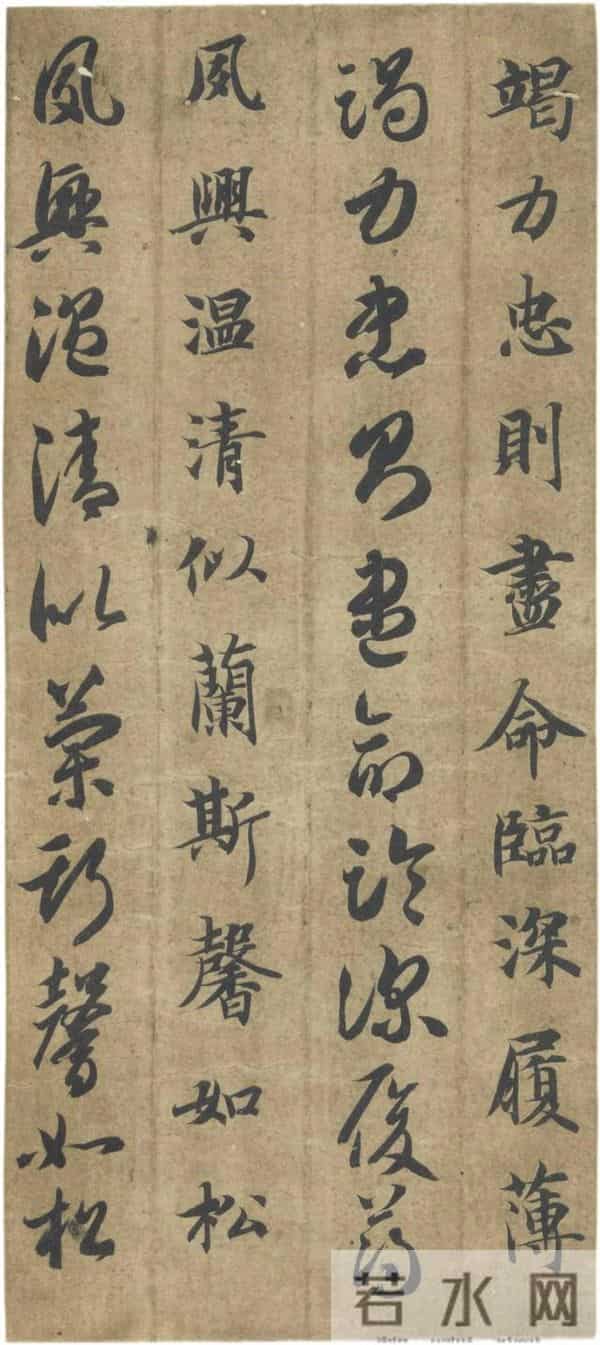 竭力忠則盡命臨深履薄
竭力忠則盡命臨深履薄
夙興温清似蘭斯馨如松
夙興温清似蘭斯馨如松
若水网